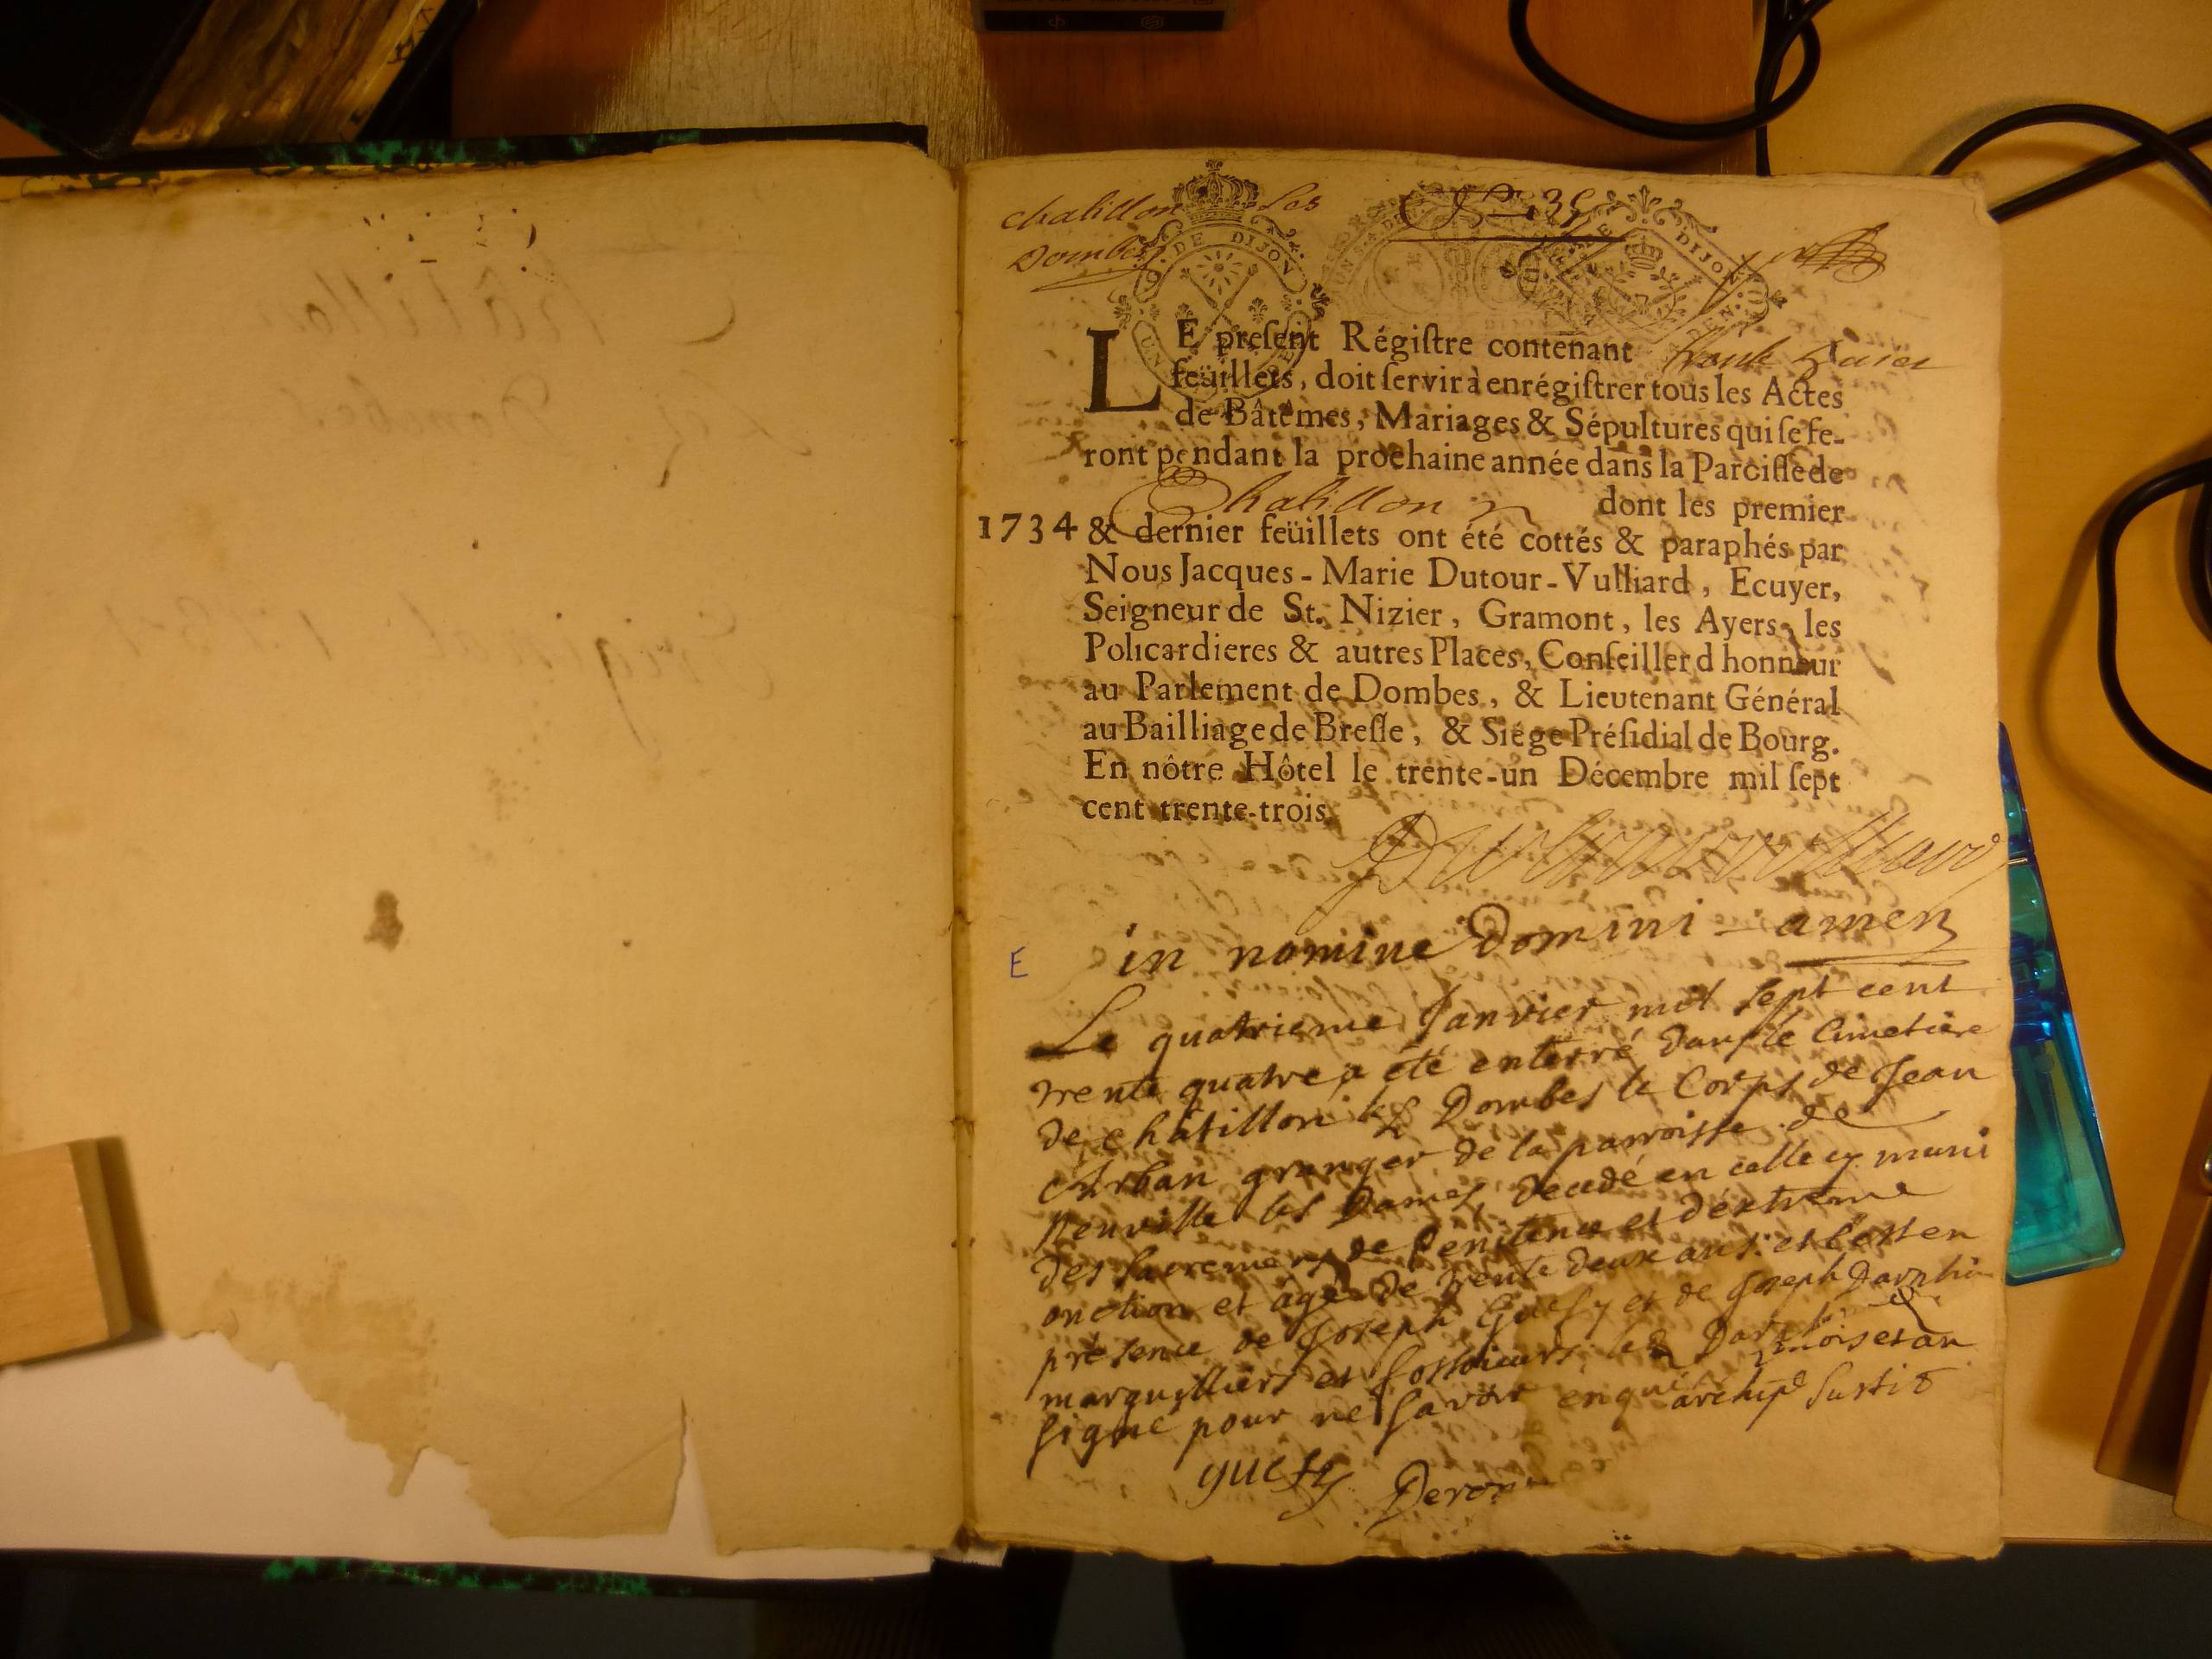 chatillon les
Dombes
DE DIJON
DIJON
LE preſent Régiſtre contenant trente
feüillets, doit ſervir à enrégiſtrer tous les Actes
de Bâtêmes, Mariages & Sépultures qui ſe fe-
ront pendant la prochaine année dans la Paroiſſe de
Chatillon dont les premier
1734 & dernier feüillets ont été cottés & paraphés par
Nous Jacques-Marie Dutour-Vulliard, Ecuyer,
Seigneur de St. Nizier, Gramont, les Ayers, les
Policardieres & autres Places, Conſeiller d honneur
au Parlement de Dombes, & Lieutenant Général
au Bailliage de Breſſe, & Siége Préſidial de Bourg.
En nôtre Hôtel le trente-un Décembre mil ſept
cent trente-trois.
E
in nomine Domini - amen
Le quatrieme Janvier mil sept cent
trente quatre a été enterré dans le Cimetiere
de châtillon les Dombes le Corps de Jean
Arban granger de la parroisse de
Neuville les Dames decedé en celle cy muni
des sacremens de penitence et dextreme
onction et agé de trente deux ans et c'est en
présence de Joseph Guesty et de Joseph
marguilliers et fossoieurs
signé pour ne savoir enquis
guesty